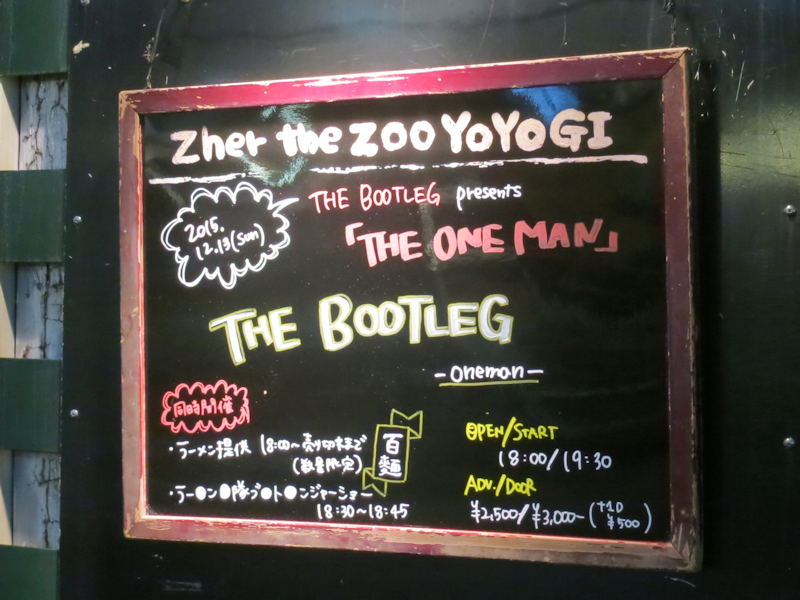 Zher the ZOO YOYOGI
2015.
12.13(sun)
THE BOOTLEG presents
「THE ONE MAN」
THE BOOTLEG
-oneman-
同時開催
・ラーメン提供 18:00~売り切れまで
(数量限定)
百麺
・ラー●ン●隊ブ●ト●ンジャーショー
18:30~18:45
OPEN/START
18:00/19:30
ADV./DOOR
¥2,500/¥3,000-(+1D ¥500)